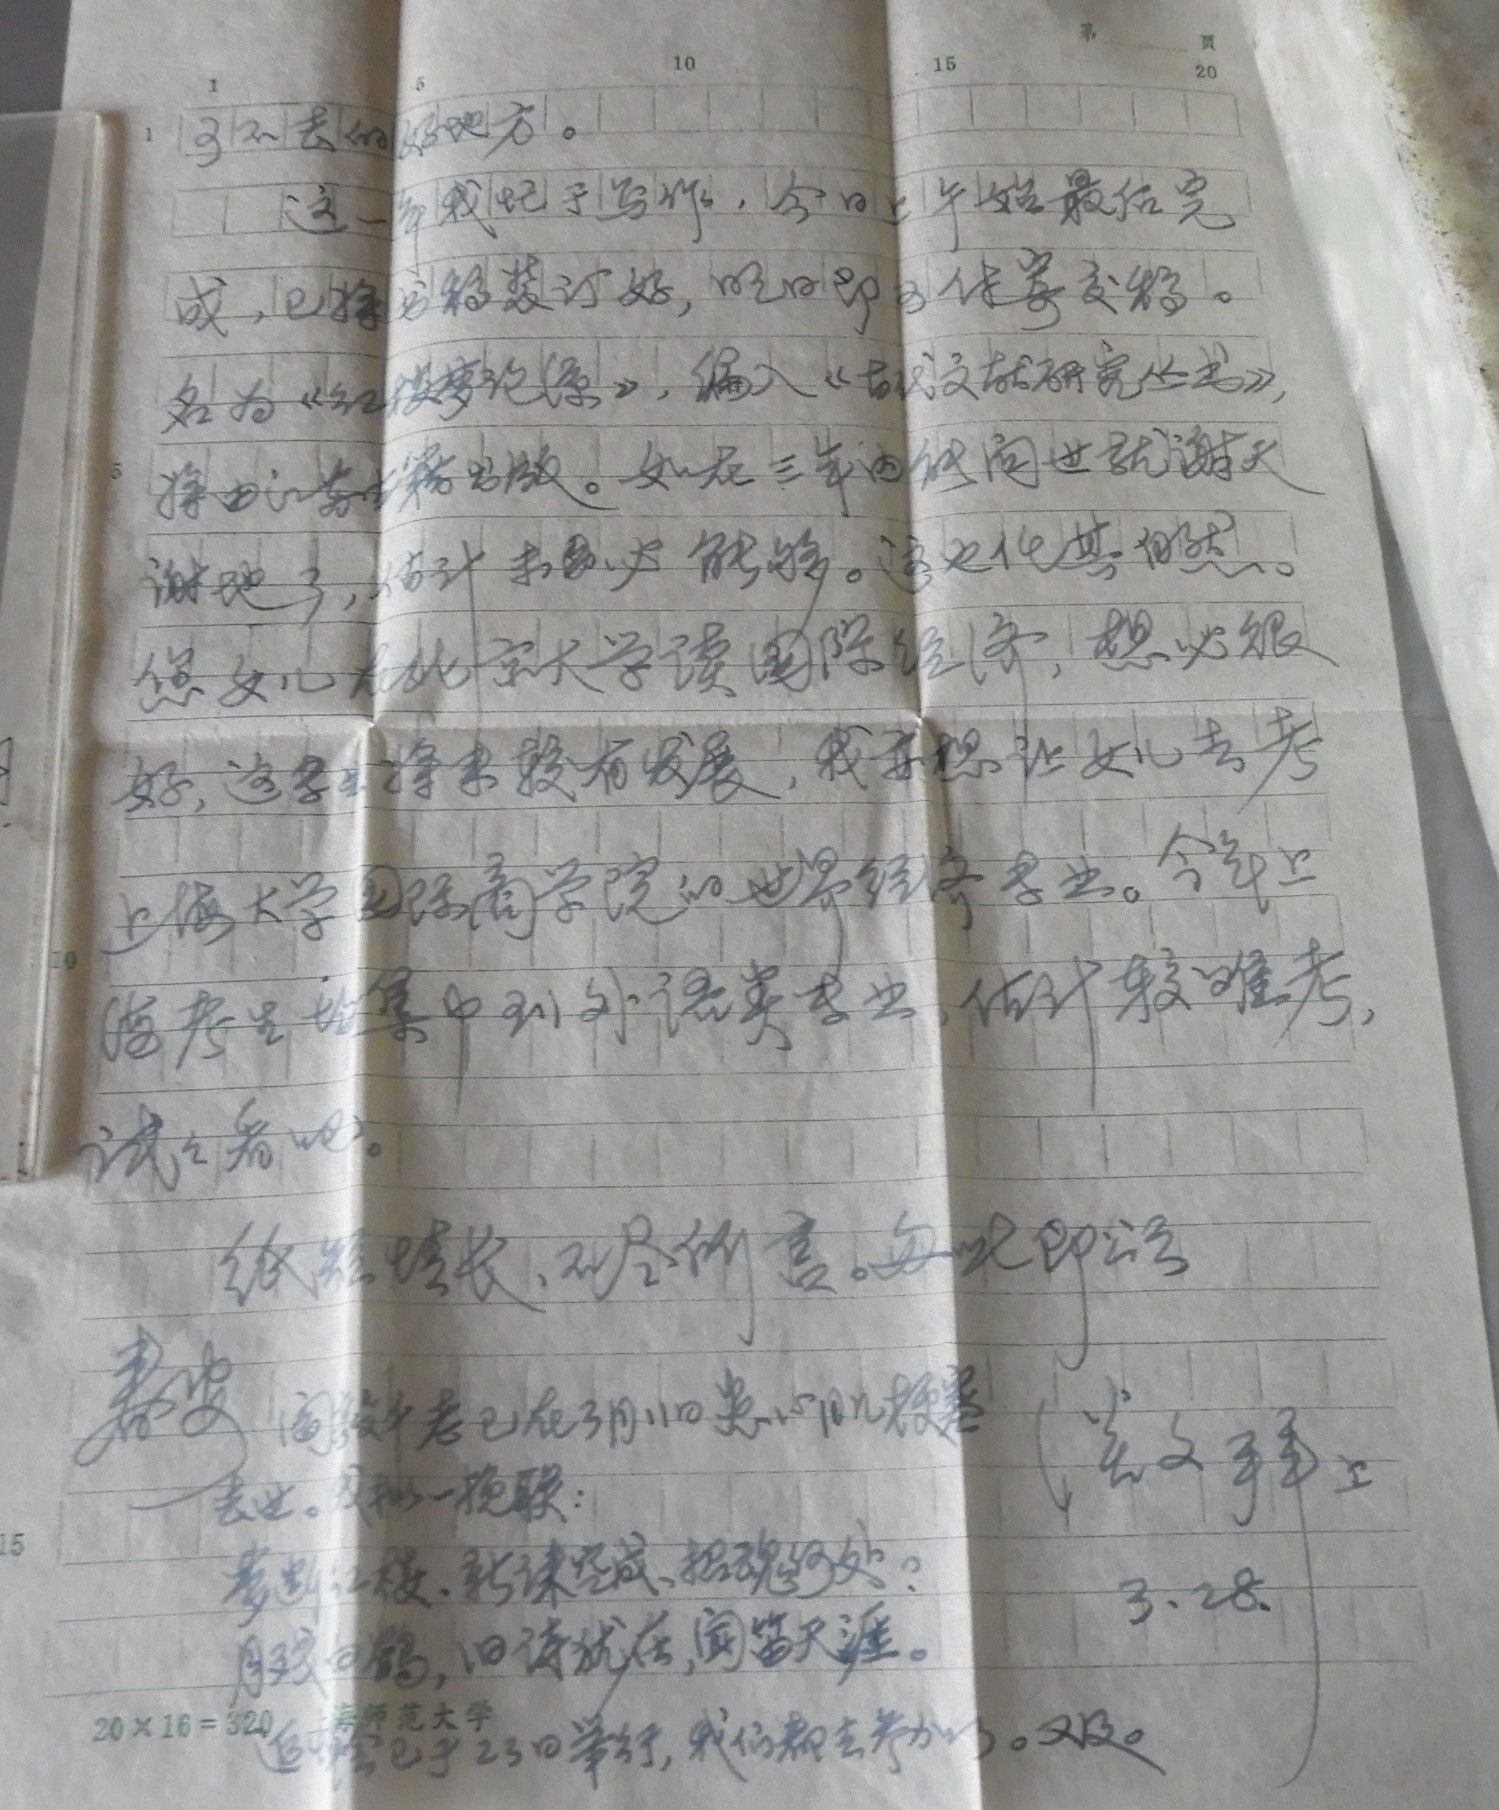 第 页
1 5 10 15 20
1 可不去的好地方。
这一年我忙于写作，今日上午始最后完
成，已将书稿装订好，明日即可付寄交稿。
名为《红楼梦论源》，编入《古代文献研究丛书》，
5 将由江苏古籍出版。如在三年内能问世就谢天
谢地了，估计未必能够。这也任其自然。
您女儿在北京大学读国际经济，想必很
好，这专业将来较有发展，我亦想让女儿去考
上海大学国际商学院的世界经济专业。今年上
10 海考生均集中到外语类专业，估计较难考，
试试看吧。
纸短情长，不尽所言。匆此即颂
春安
文 上
3.28.
老已在3月11日患心肌梗塞
去世。我拟一挽联：
梦断红楼，新课空成，招魂何处？
月 鹤，旧诗犹在，闻笛天涯。
15
20×16=320 上海师范大学
追悼会已于23日举行，我们都去参加了。又及。